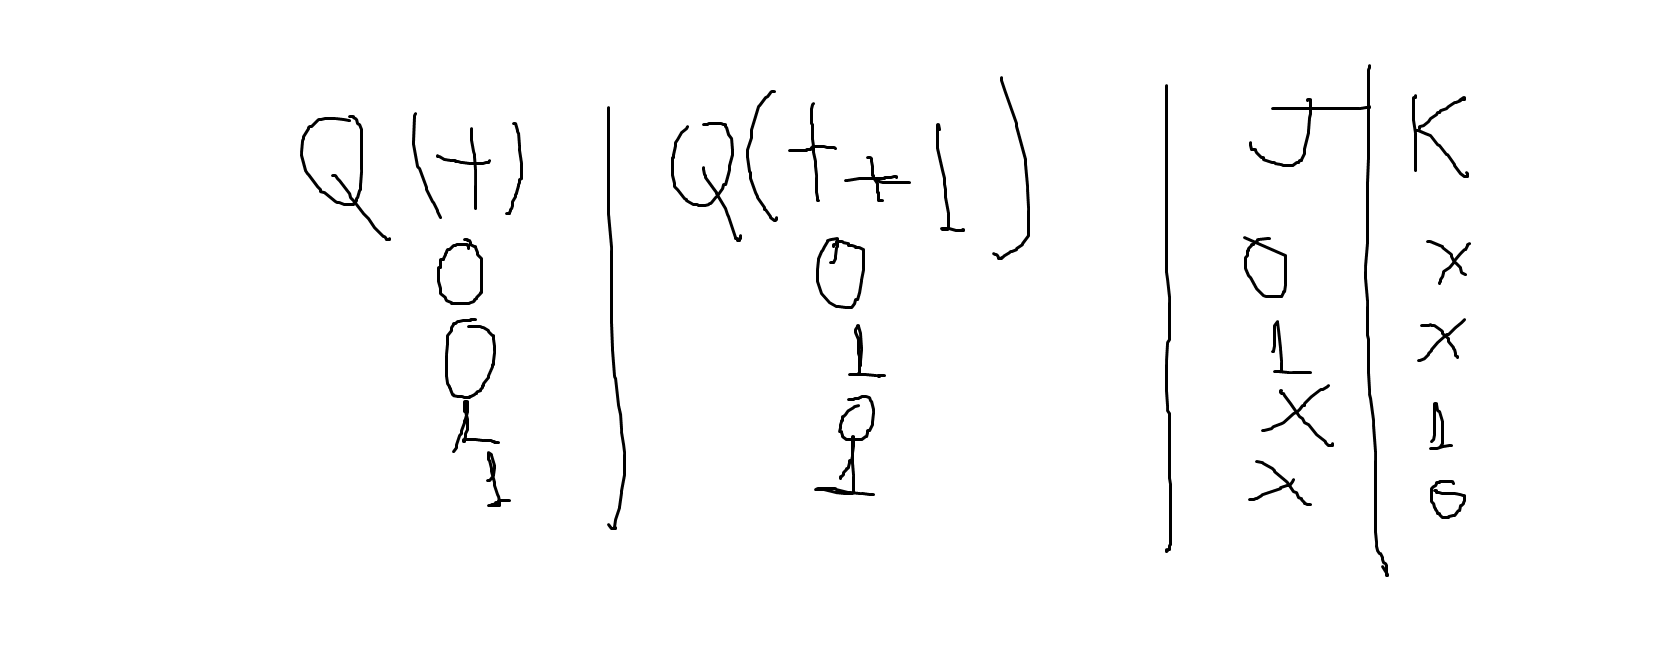 Q(t) | Q(t+1) | J | K
0 | 0 | 0 | X
0 | 1 | 1 | X
1 | 0 | X | 1
1 | 1 | X | 0